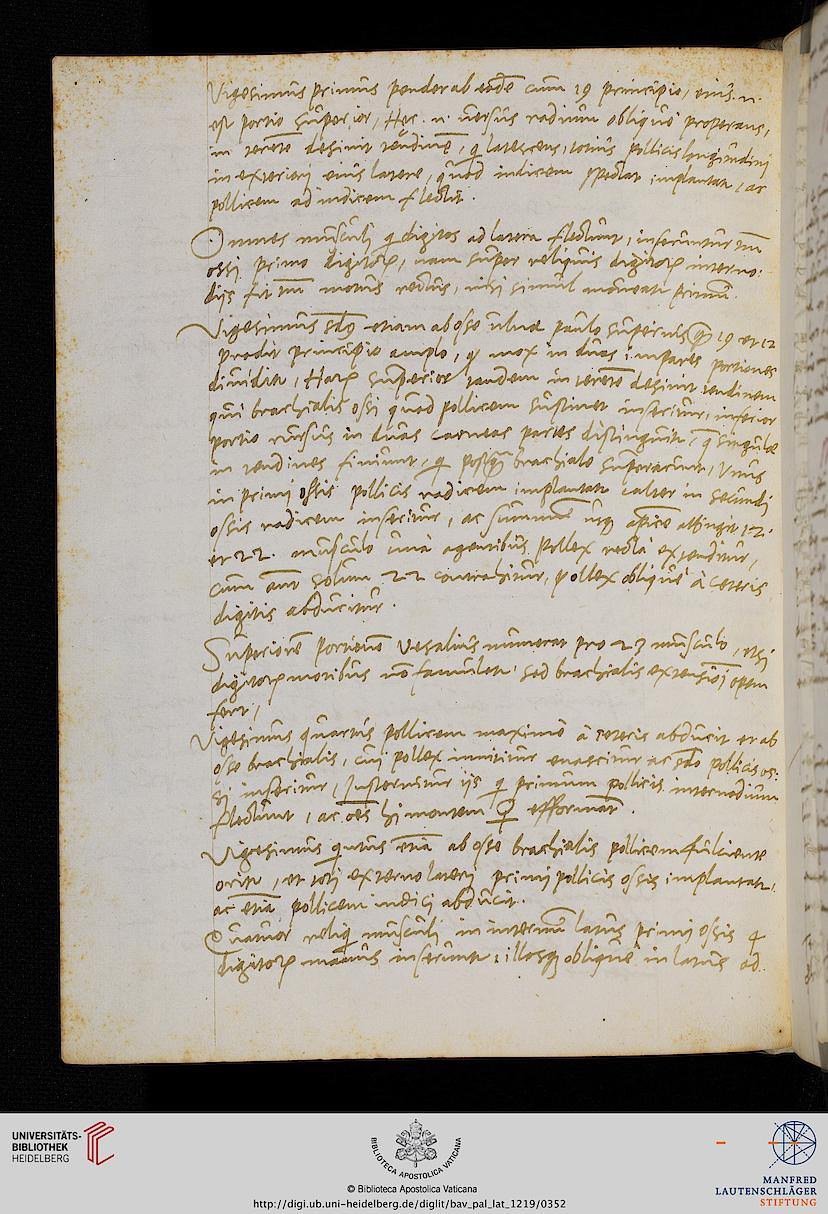 Vigesimus primus pendet ab eodē cum 19 principio, eius .n.
est portio superior, Hęc .n. versus radium obliquè properans,
in teretē desinit tendinē, q̃ latescens, totius pollicis longitudini
in exteriori eius latere, quod indicem spectat implantat̃, ac
pollicem ad indicem flectit.
Omnes musculi q̃ digitos ad latera flectunt, inferuntur tm̃
ossi primo digitoꝝ, nam super reliquis digitoꝝ interno:
dijs fit tm̃ motus rectus, nisi simul moveat̃ primū.
Vigesimus sc̃ds etiam ab osse ulnæ paulo superius ꝗ̃ 19 et 12
prodit principio amplo, q̃ mox in duas impares portiones
dividit̃, Haꝝ superior tandem in teretē desinit tendinem
qui brachialis ossi quod pollicem sustinet inseritur, inferior
portio rursus in duas carneas partes distinguit̃, q̃ singulæ
in tendines finiunt, q̃ postꝗ̃ brachiale superarunt, Vnus
in primi ossis pollicis radicem implantat̃ alter in secundi
ossis radicem inseritur, ac summū usq̨ apicē attingit 12.
et 22. musculo unà agentibus pollex rectà extenditur,
cum aut̃ solum 22 contrahitur, pollex obliquè à ceteris
digitis abducitur.
Superiorē portionē Vesalius numerat pro 23 musculo, etsi
digitoꝝ motibus nõ famulet̃, sed brachialis extensioi opem
fert,
Vigesimus quartus pollicem maximè à ceteris abducit et ab
osse brachialis, cui pollex innititur enascitur ac sc̃do pollicis os:
si inseritur, Insternitur ijs q̃ primum pollicis internodium
flectunt, ac õẽs hi montem ♀ efformāt.
Vigesimus quintus etiā ab osse brachialis pollicem fulciente
orit̃, et toti externo lateri primi pollicis ossis implantat̃,
ac etiā pollicem indici abducit.
Quatuor reliqi musculi in internū latus primi ossis 4
digitoꝝ manus inserunt̃, illosq̨ obliquè in latus ad
UNIVERSITÄTS-
BIBLIOTHEK
HEIDELBERG
BIBLIOTECA APOSTOLICA VATICANA
© Biblioteca Apostolica Vaticana
http://digi.ub.uni-heidelberg.de/diglit/bav_pal_lat_1219/0352
MANFRED
LAUTENSCHLÄGER
STIFTUNG